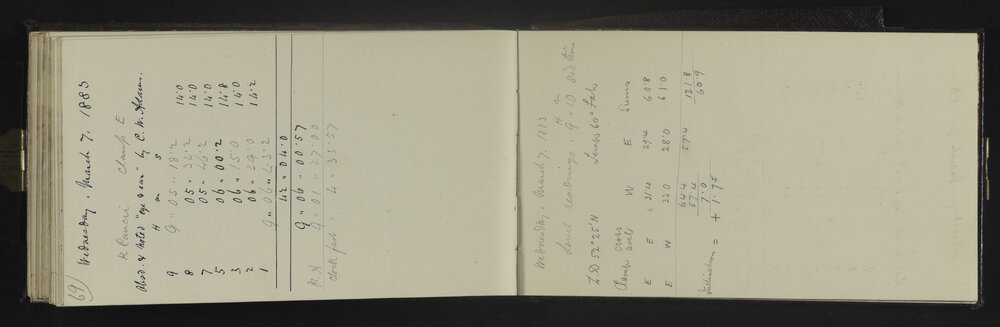 69
Wednesday, March 7, 1883
κ Cancri Clamp E
Obsd. & noted "eye & ear" by C. W. Adams.
H m s
9 9 " 05 " 18.2 14.0
8 05 " 32.2 14.0
7 05 " 46.2 14.0
5 06 " 00.2 14.8
3 06 " 15.0 14.0
2 06 " 29.0 14.2
1 9 " 06 " 43.2
42 " 04.0
9 " 06 " 00.57
R.A 9 " 01 " 27.00
Clock fast = 4 " 33.57
Wednesday, March 7, 1883
H m
Level readings. 9 " 10 Sid time
Z.D 52° 25' N Temp 60° Fah.
cross
Clamp axis W E Sums
E E 31.4 29.4 60.8
E W 33.0 28.0 61.0
64.4 57.4 121.8
57.4 60.9
7.0
Inclination = + 1.75